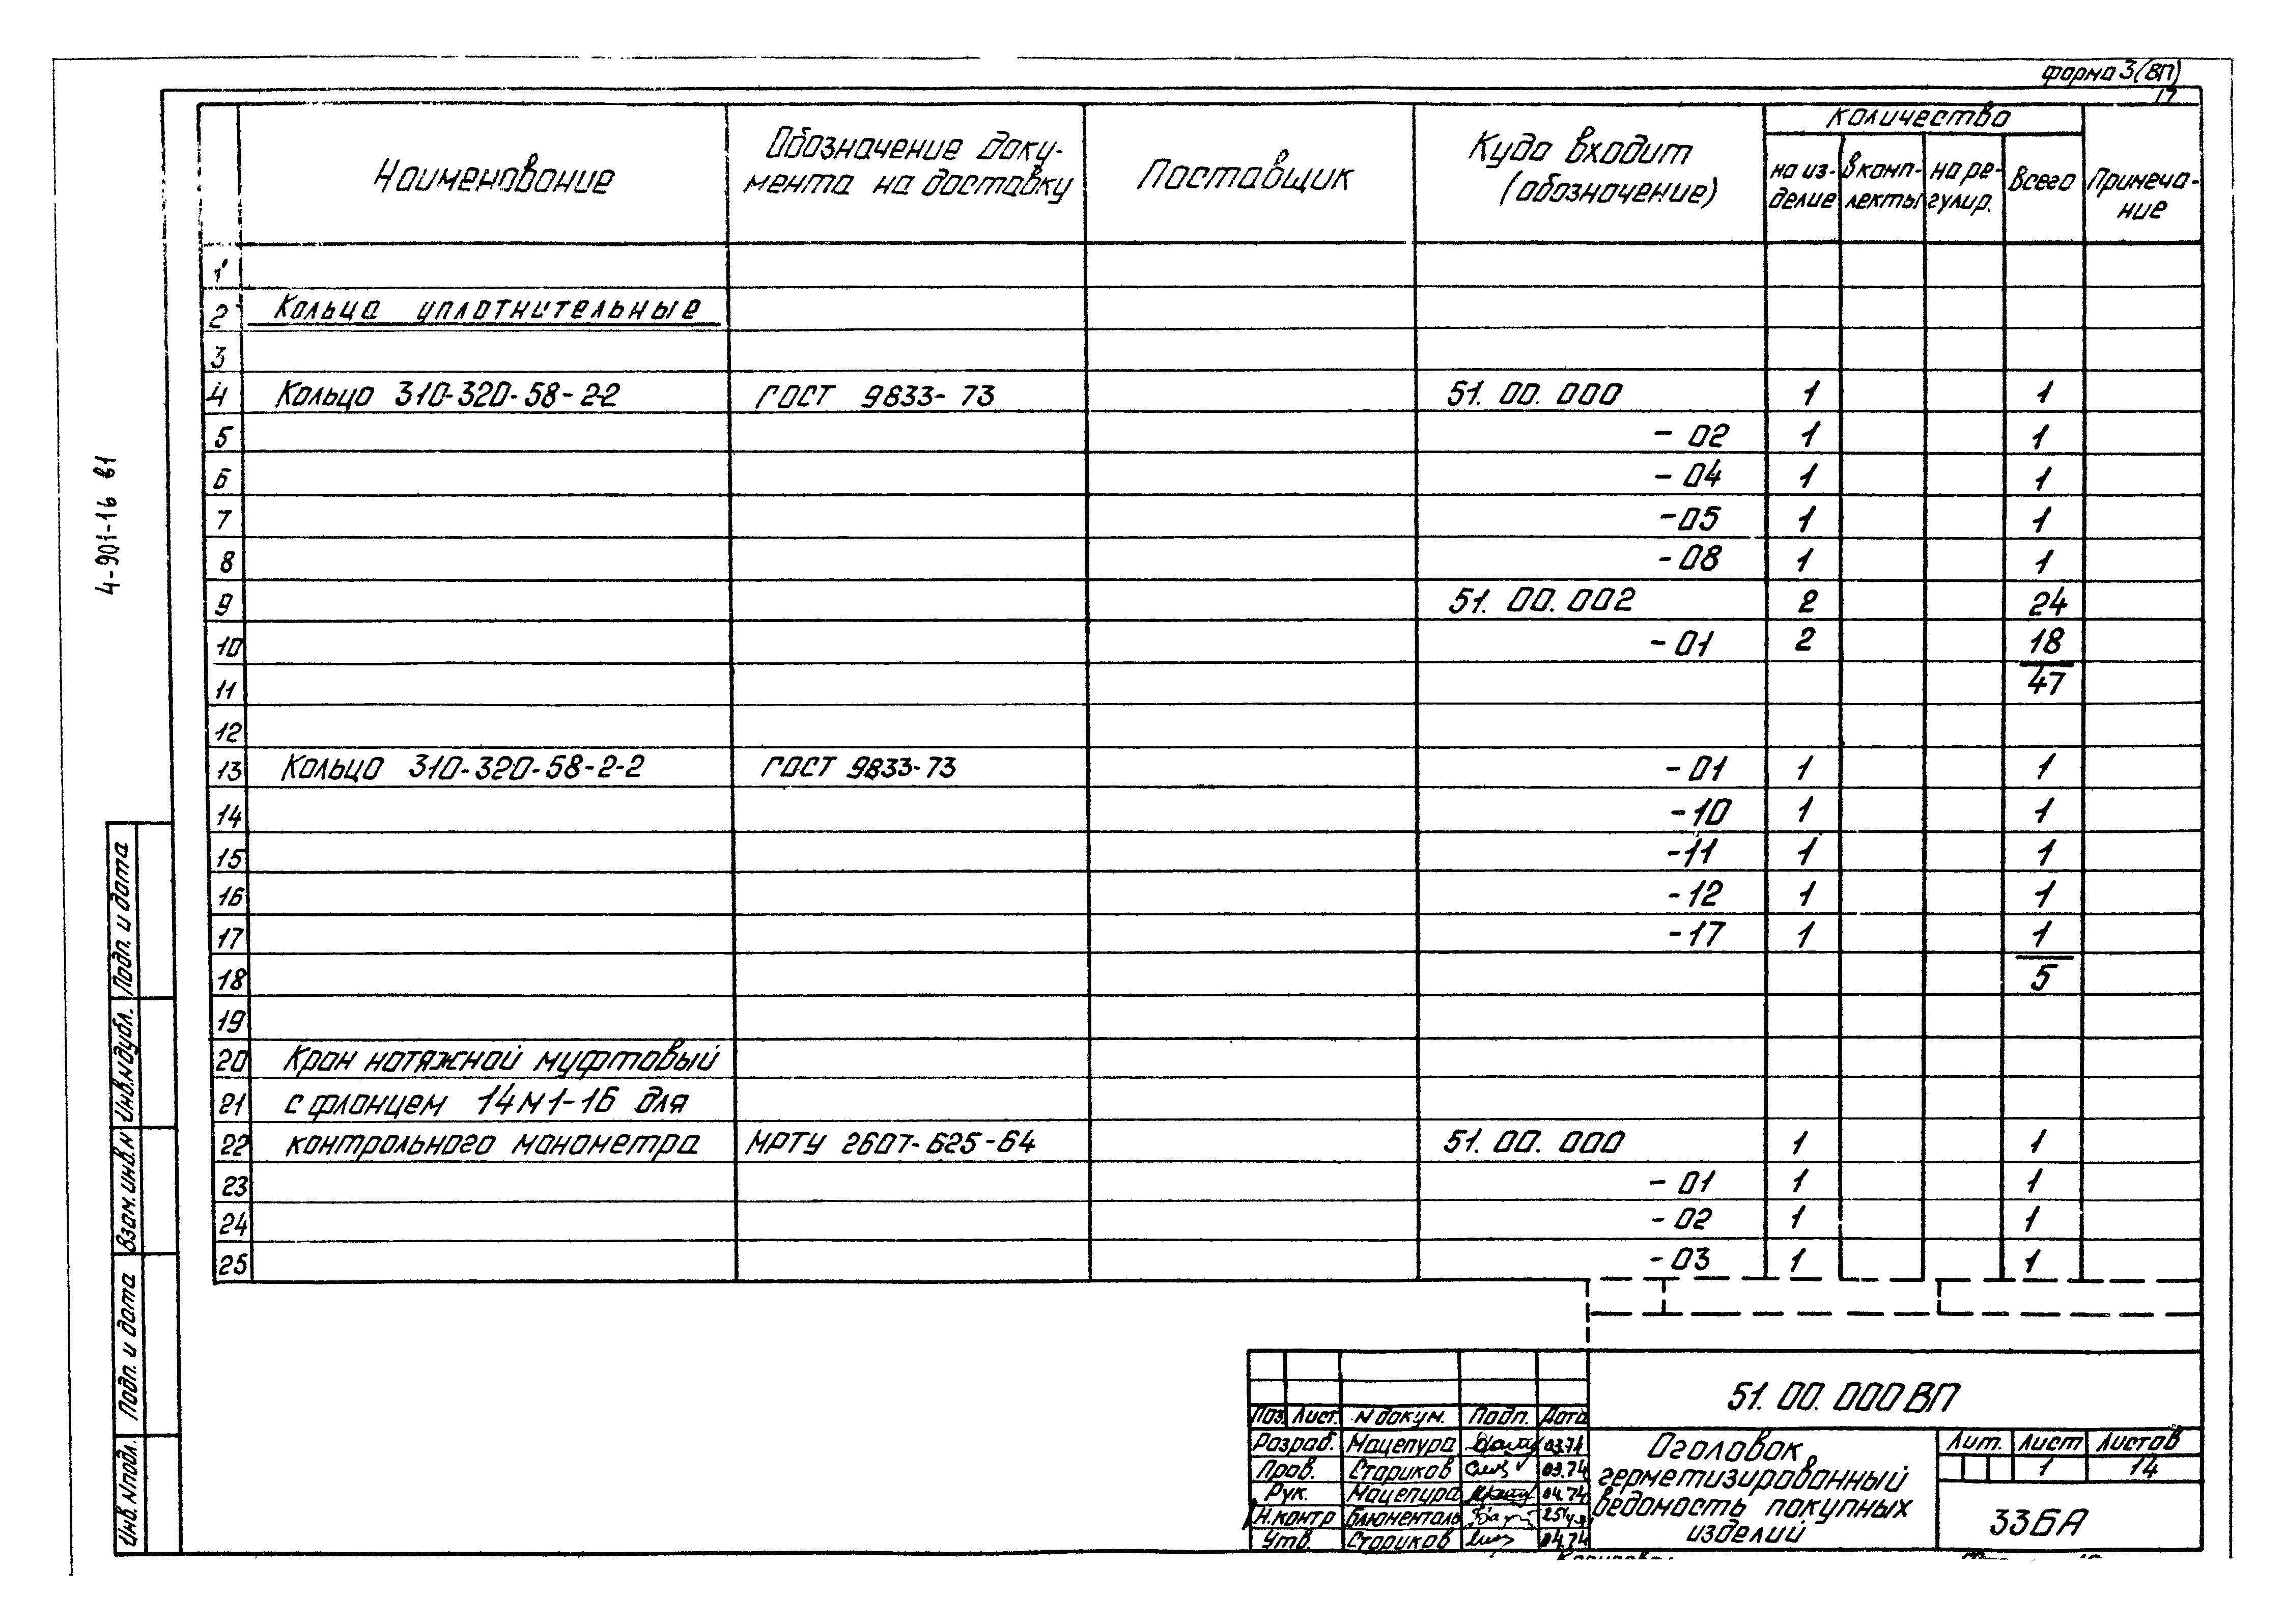 форма 3 (ВП)
17
Наименование
Обозначение доку-
мента на доставку
Поставщик
Куда входит
(обозначение)
количество
на из-
делие
в комп-
лекты
на ре-
гулир.
Всего
Примеча-
ние
1
2 Кольца уплотнительные
3
4 Кольцо 310-320-58-2-2 ГОСТ 9833-73 51.00.000 1 1
5 -02 1 1
6 -04 1 1
7 -05 1 1
8 -08 1 1
9 51.00.002 2 24
10 -01 2 18
11 47
12
13 Кольцо 310-320-58-2-2 ГОСТ 9833-73 -01 1 1
14 -10 1 1
15 -11 1 1
16 -12 1 1
17 -17 1 1
18 5
19
20 Кран натяжной муфтовый
21 с фланцем 14М1-16 для
22 контрольного манометра МРТУ 2607-625-64 51.00.000 1 1
23 -01 1 1
24 -02 1 1
25 -03 1 1
4-901-16 в1
Подп. и дата
Инв.№дубл.
Взам.инв.№
Подп. и дата
Инв.№подл.
51.00.000ВП
Поз. Лист. № докум. Подп. Дата
Разраб. Мацепура 03.74
Пров. Стариков 03.74
Рук. Мацепура 04.74
Н.контр Блюменталь
Утв. Стариков 04.74
Оголовок
герметизированный
ведомость покупных
изделий
Лит. Лист Листов
1 14
33БА